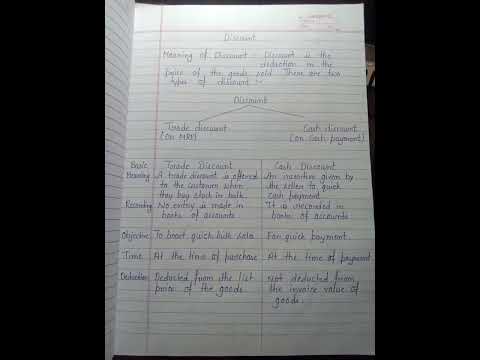 Discount
Meaning of Discount :- Discount is the
deduction in the
price of the goods sold. There are two
types of discount :-
Discount
Trade discount Cash discount
(on MRP) (on Cash payment)
Basic Trade Discount Cash Discount
Meaning A trade discount is offered An incentive given by
to the customer when the seller to quick
they buy stock in bulk. cash payment.
Recording No entry is made in It is recorded in
books of accounts books of accounts
Objective To boost quick bulk sale For quick payment.
Time At the time of purchase At the time of payment
Deduction Deducted from the list Not deducted from
price of the goods the invoice value of
goods.